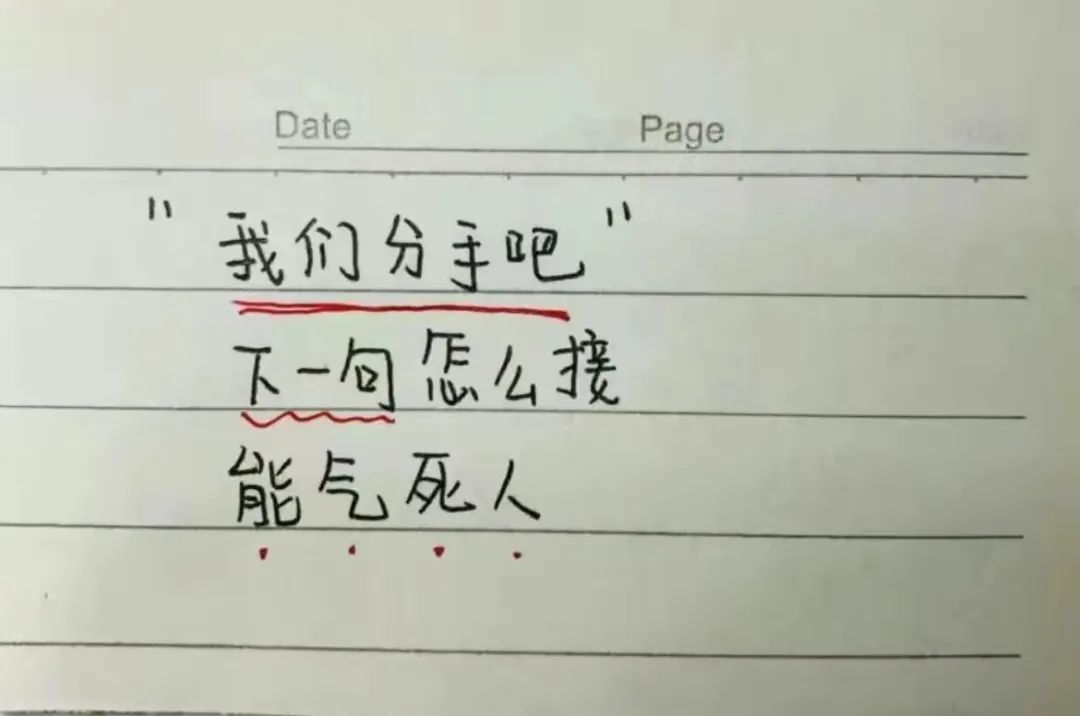 Date Page
"我们分手吧"
下一句怎么接
能气死人